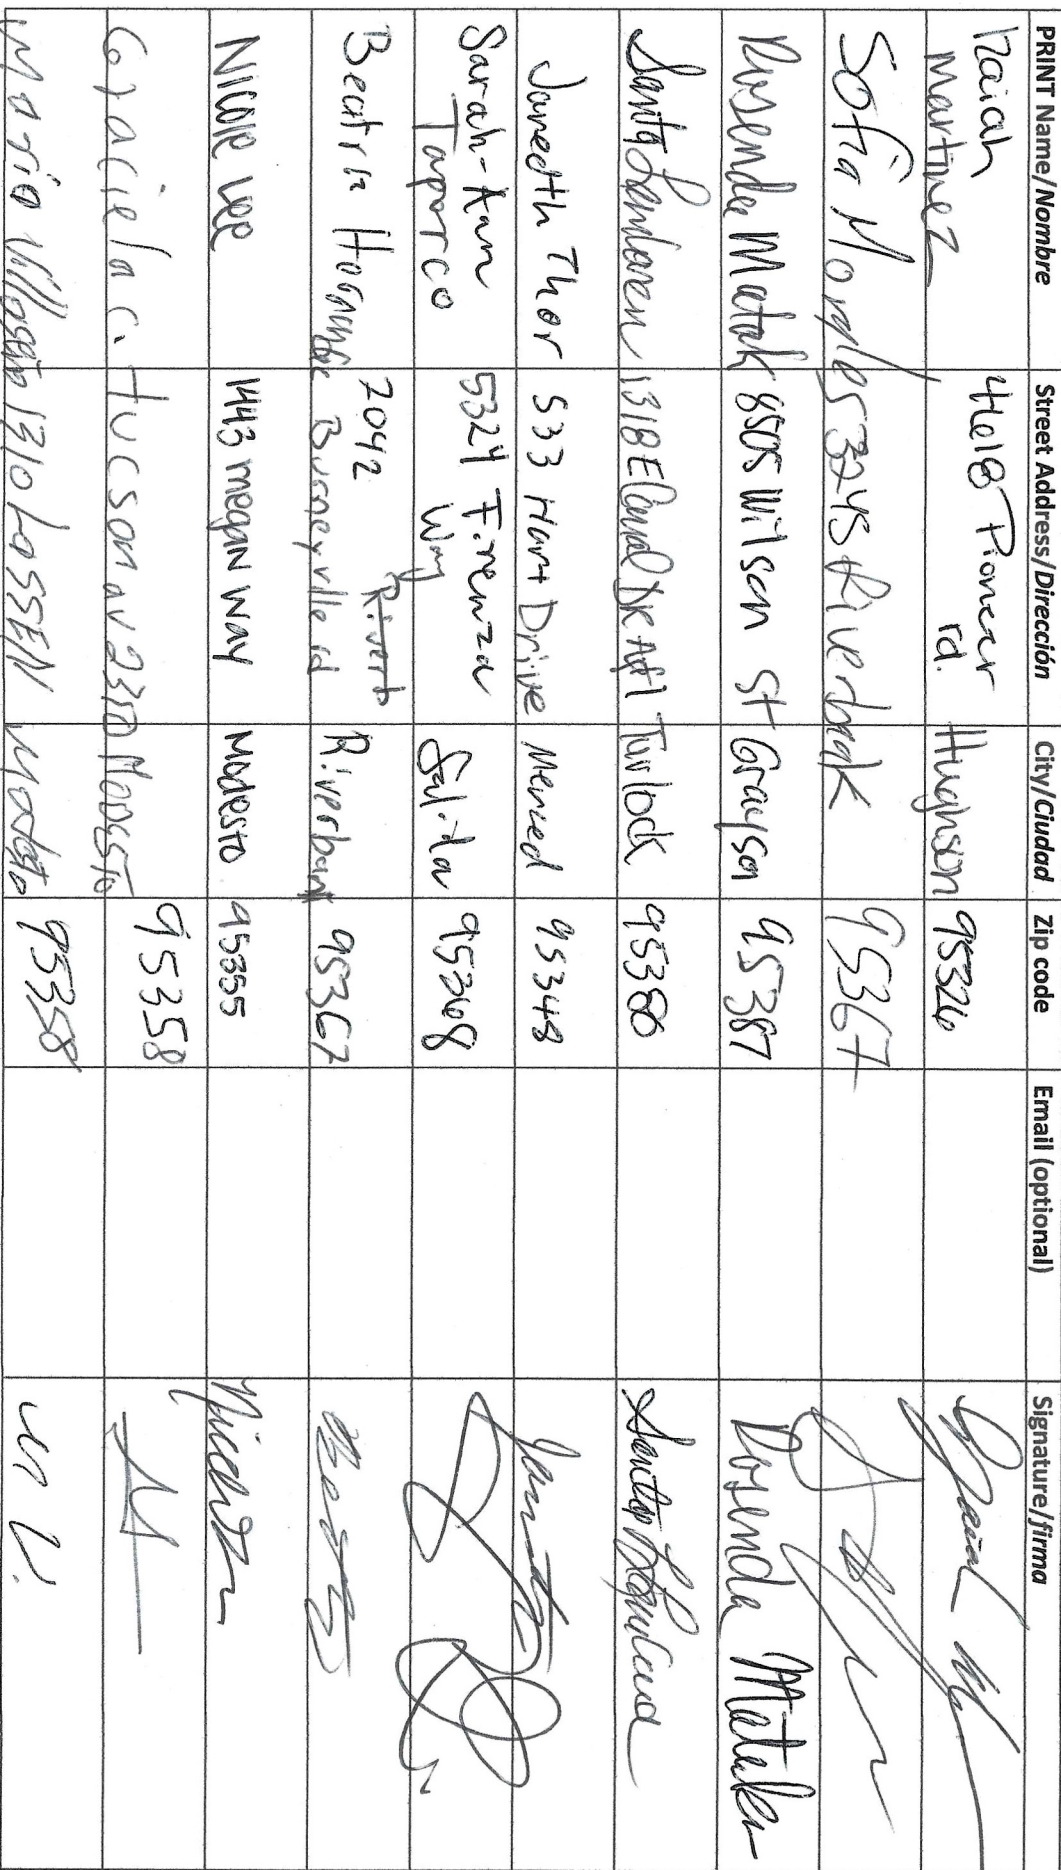 PRINT Name/Nombre Street Address/Dirección City/Ciudad Zip code Email (optional) Signature/firma
Naiah Martinez 4618 Pioneer rd. Hughson 95326
Sofia 5324 Riverbank 95367
Rosenda Matak 8505 Wilson St Grayson 95387 Rosenda Matak
1318 E Canal DR Apt 1 Turlock 95380
Janeth Thor 533 Hart Drive Merced 95348
Sarah-Ann Taporco 5324 Firenza Way Salida 95368
Beatriz 2042 Burneyville rd Riverbank 95367
Nicole Lee 1443 megan way Modesto 95355
Graciela C. Tucson av 2310 Modesto 95358
Maria 1310 LaSSEN Modesto 95358